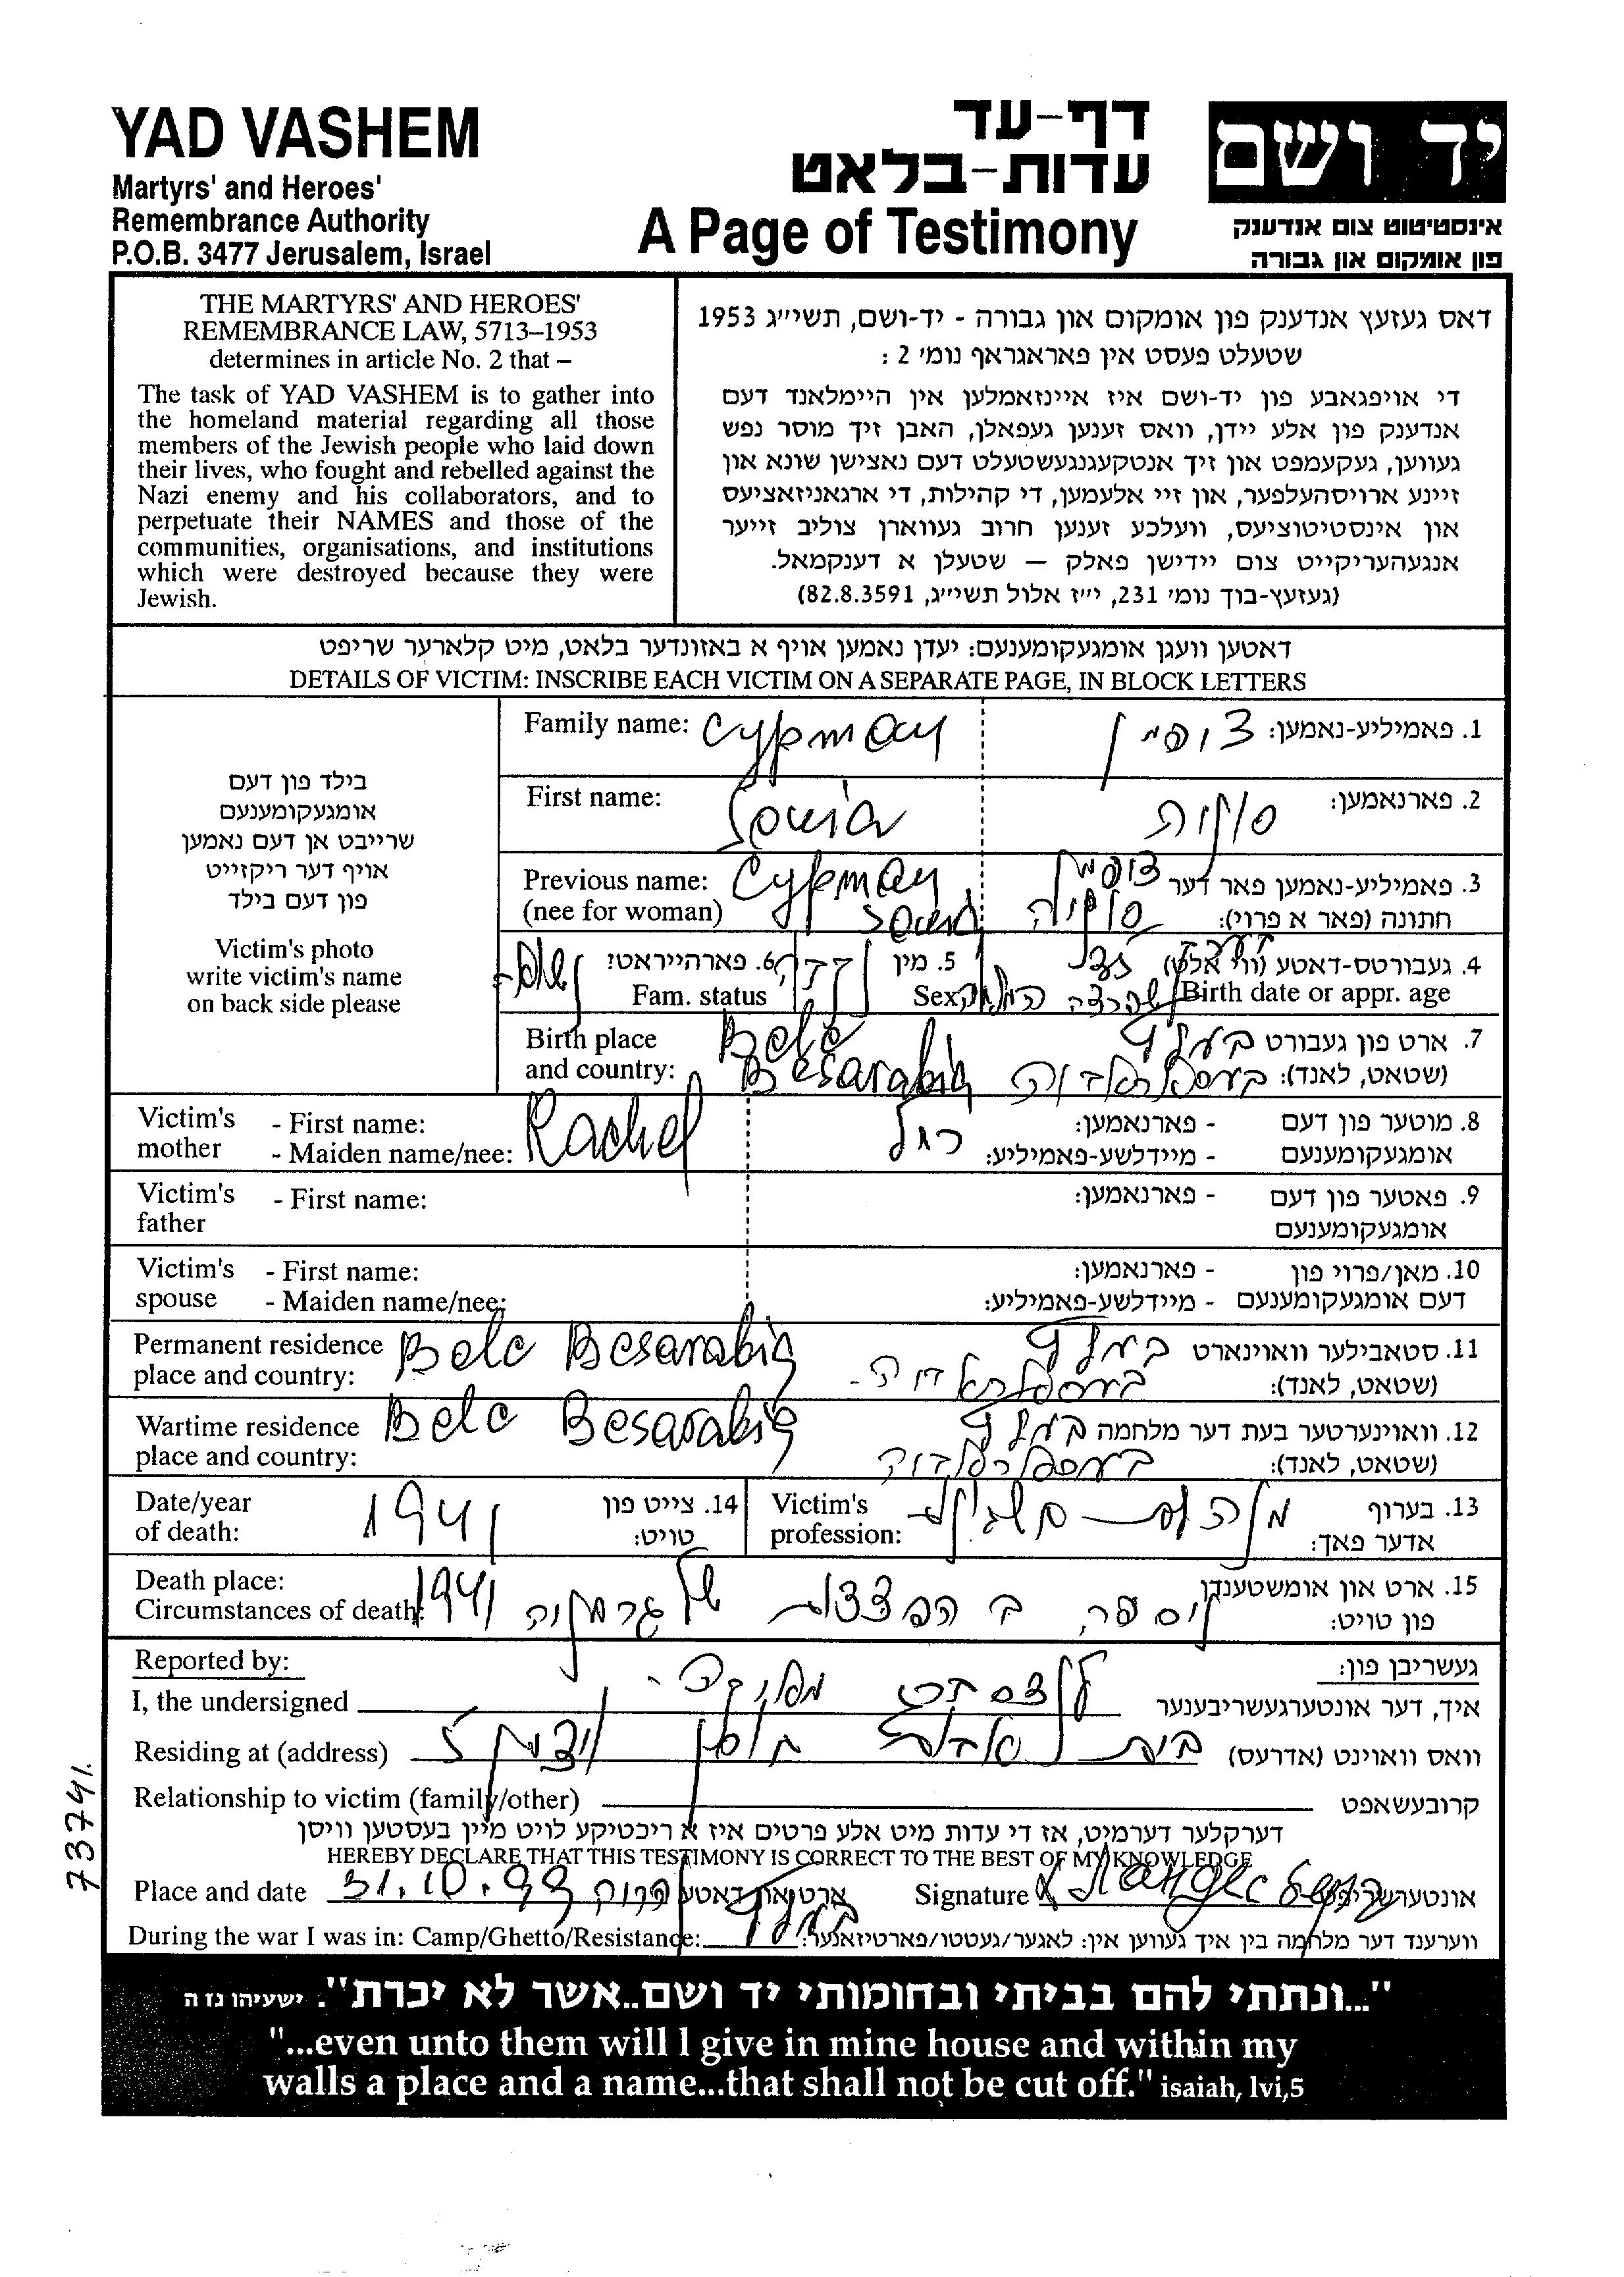 YAD VASHEM
Martyrs' and Heroes'
Remembrance Authority
P.O.B. 3477 Jerusalem, Israel
דף-עד
עדות-בלאט
A Page of Testimony
יד ושם
אינסטיטוט צום אנדענק
פון אומקום און גבורה
THE MARTYRS' AND HEROES'
REMEMBRANCE LAW, 5713–1953
determines in article No. 2 that –
The task of YAD VASHEM is to gather into
the homeland material regarding all those
members of the Jewish people who laid down
their lives, who fought and rebelled against the
Nazi enemy and his collaborators, and to
perpetuate their NAMES and those of the
communities, organisations, and institutions
which were destroyed because they were
Jewish.
דאס געזעץ אנדענק פון אומקום און גבורה - יד-ושם, תשי״ג 1953
שטעלט פעסט אין פאראגראף נומ׳ 2 :
די אויפגאבע פון יד-ושם איז איינזאמלען אין היימלאנד דעם
אנדענק פון אלע יידן, וואס זענען געפאלן, האבן זיך מוסר נפש
געווען, געקעמפט און זיך אנטקעגנגעשטעלט דעם נאצישן שונא און
זיינע ארויסהעלפער, און זיי אלעמען, די קהילות, די ארגאניזאציעס
און אינסטיטוציעס, וועלכע זענען חרוב געווארן צוליב זייער
אנגעהעריקייט צום יידישן פאלק — שטעלן א דענקמאל.
(געזעץ-בוך נומ׳ 231, י״ז אלול תשי״ג, 82.8.3591)
דאטען וועגן אומגעקומענעם: יעדן נאמען אויף א באזונדער בלאט, מיט קלארער שריפט
DETAILS OF VICTIM: INSCRIBE EACH VICTIM ON A SEPARATE PAGE, IN BLOCK LETTERS
בילד פון דעם
אומגעקומענעם
שרייבט אן דעם נאמען
אויף דער ריקזייט
פון דעם בילד
Victim's photo
write victim's name
on back side please
Family name: Cypman
1. פאמיליע-נאמען: ציפמן
First name: Sonia
2. פארנאמען: סוניה
Previous name: Cypman
(nee for woman) Sonia
3. פאמיליע-נאמען פאר דער ציפמן
חתונה (פאר א פרוי): סוניה
4. געבורטס-דאטע (ווי אלט)
Birth date or appr. age
5. מין
Sex
6. פארהייראט?
Fam. status
Birth place Belc
and country: Besarabia
7. ארט פון געבורט בעלץ
(שטאט, לאנד): בעסאראביה
Victim's - First name: Rachel
mother - Maiden name/nee:
8. מוטער פון דעם - פארנאמען: רחל
אומגעקומענעם - מיידלשע-פאמיליע:
Victim's - First name:
father
9. פאטער פון דעם - פארנאמען:
אומגעקומענעם
Victim's - First name:
spouse - Maiden name/nee:
10. מאן/פרוי פון - פארנאמען:
דעם אומגעקומענעם - מיידלשע-פאמיליע:
Permanent residence Belc Besarabia
place and country:
11. סטאבילער וואוינארט בעלץ
(שטאט, לאנד): בעסאראביה
Wartime residence Belc Besarabia
place and country:
12. וואוינערטער בעת דער מלחמה בעלץ
(שטאט, לאנד): בעסאראביה
Date/year 1941
of death:
14. צייט פון
טויט:
Victim's
profession:
13. בערוף
אדער פאך:
Death place:
Circumstances of death: 1941
15. ארט און אומשטענדן
פון טויט: נספה ב הפצצות של גרמניה
Reported by:
געשריבן פון:
I, the undersigned
איך, דער אונטערגעשריבענער
Residing at (address)
וואס וואוינט (אדרעס) בית
Relationship to victim (family/other)
קרובעשאפט
דערקלער דערמיט, אז די עדות מיט אלע פרטים איז א ריכטיקע לויט מיין בעסטען וויסן
HEREBY DECLARE THAT THIS TESTIMONY IS CORRECT TO THE BEST OF MY KNOWLEDGE
Place and date 31.10.99 ארט און דאטע
Signature אונטערשריפט
During the war I was in: Camp/Ghetto/Resistance:
ווערענד דער מלחמה בין איך געווען אין: לאגער/געטטו/פארטיזאנער:
73741.
"...ונתתי להם בביתי ובחומותי יד ושם..אשר לא יכרת". ישעיהו נז ה
"...even unto them will I give in mine house and within my
walls a place and a name...that shall not be cut off." isaiah, lvi,5